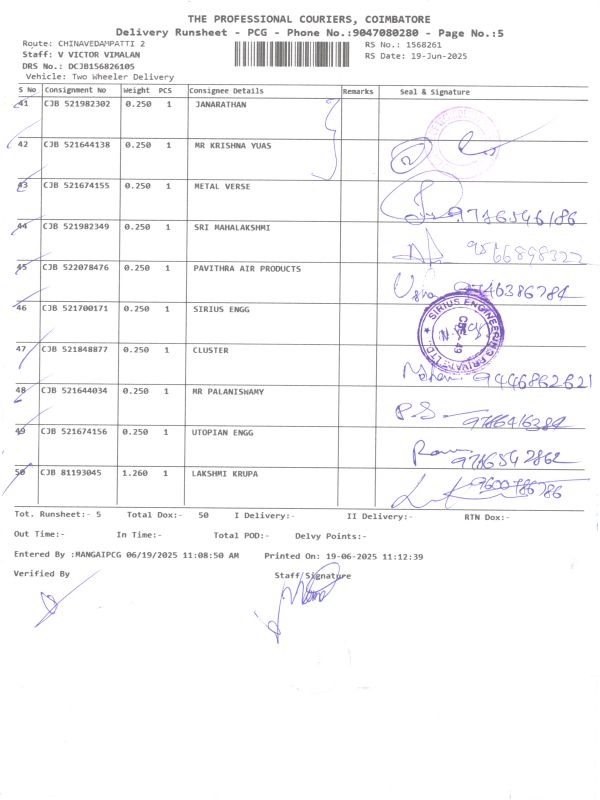 THE PROFESSIONAL COURIERS, COIMBATORE
Delivery Runsheet - PCG - Phone No.:9047080280 - Page No.:5
Route: CHINAVEDAMPATTI 2 RS No.: 1568261
Staff: V VICTOR VIMALAN RS Date: 19-Jun-2025
DRS No.: DCJB156826105
Vehicle: Two Wheeler Delivery
S No Consignment No Weight PCS Consignee Details Remarks Seal & Signature
41 CJB 521982302 0.250 1 JANARATHAN
42 CJB 521644138 0.250 1 MR KRISHNA YUAS
43 CJB 521674155 0.250 1 METAL VERSE 9786546186
44 CJB 521982349 0.250 1 SRI MAHALAKSHMI 9566898322
45 CJB 522078476 0.250 1 PAVITHRA AIR PRODUCTS
46 CJB 521700171 0.250 1 SIRIUS ENGG SIRIUS ENGINEERING PRIVATE LTD. CBE 49
47 CJB 521848877 0.250 1 CLUSTER 9446862621
48 CJB 521644034 0.250 1 MR PALANISWAMY P.S 9786416384
49 CJB 521674156 0.250 1 UTOPIAN ENGG
50 CJB 81193045 1.260 1 LAKSHMI KRUPA 9600786786
Tot. Runsheet:- 5 Total Dox:- 50 I Delivery:- II Delivery:- RTN Dox:-
Out Time:- In Time:- Total POD:- Delvy Points:-
Entered By :MANGAIPCG 06/19/2025 11:08:50 AM Printed On: 19-06-2025 11:12:39
Verified By Staff Signature